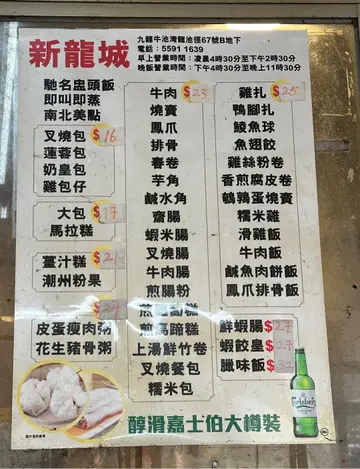 新龍城
九龍牛池灣龍池徑67號B地下
電話：5591 1639
早上營業時間：凌晨4時30分至下午2時30分
晚飯營業時間：下午4時30分至晚上11時30分
馳名盅頭飯
即叫即蒸
南北美點
叉燒包
$16
蓮蓉包
奶皇包
雞包仔
大包
$17
馬拉糕
薑汁糕
潮州粉果
皮蛋瘦肉粥
花生豬骨粥
牛肉
$23
燒賣
鳳爪
排骨
春卷
芋角
鹹水角
齋腸
蝦米腸
叉燒腸
牛肉腸
煎腸粉
煎馬蹄糕
上湯鮮竹卷
叉燒餐包
糯米包
雞扎
$25
鴨腳扎
鯪魚球
魚翅餃
雞絲粉卷
香煎腐皮卷
鵪鶉蛋燒賣
糯米雞
滑雞飯
牛肉飯
鹹魚肉餅飯
鳳爪排骨飯
鮮蝦腸
$27
蝦餃皇
$27
臘味飯
$32
醇滑嘉士伯大樽裝
Carlsberg